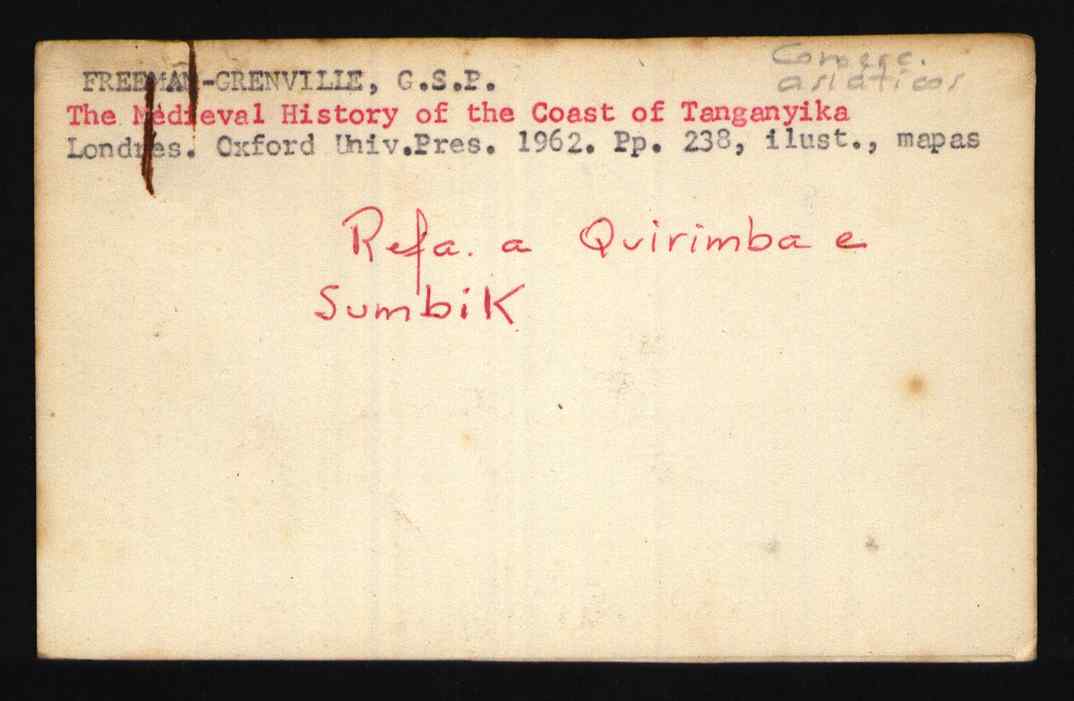 Comerc.
asiaticos
FREEMAN-GRENVILLE, G.S.P.
The Medieval History of the Coast of Tanganyika
Londres. Oxford Univ.Pres. 1962. Pp. 238, ilust., mapas
Refa. a Quirimba e
Sumbik